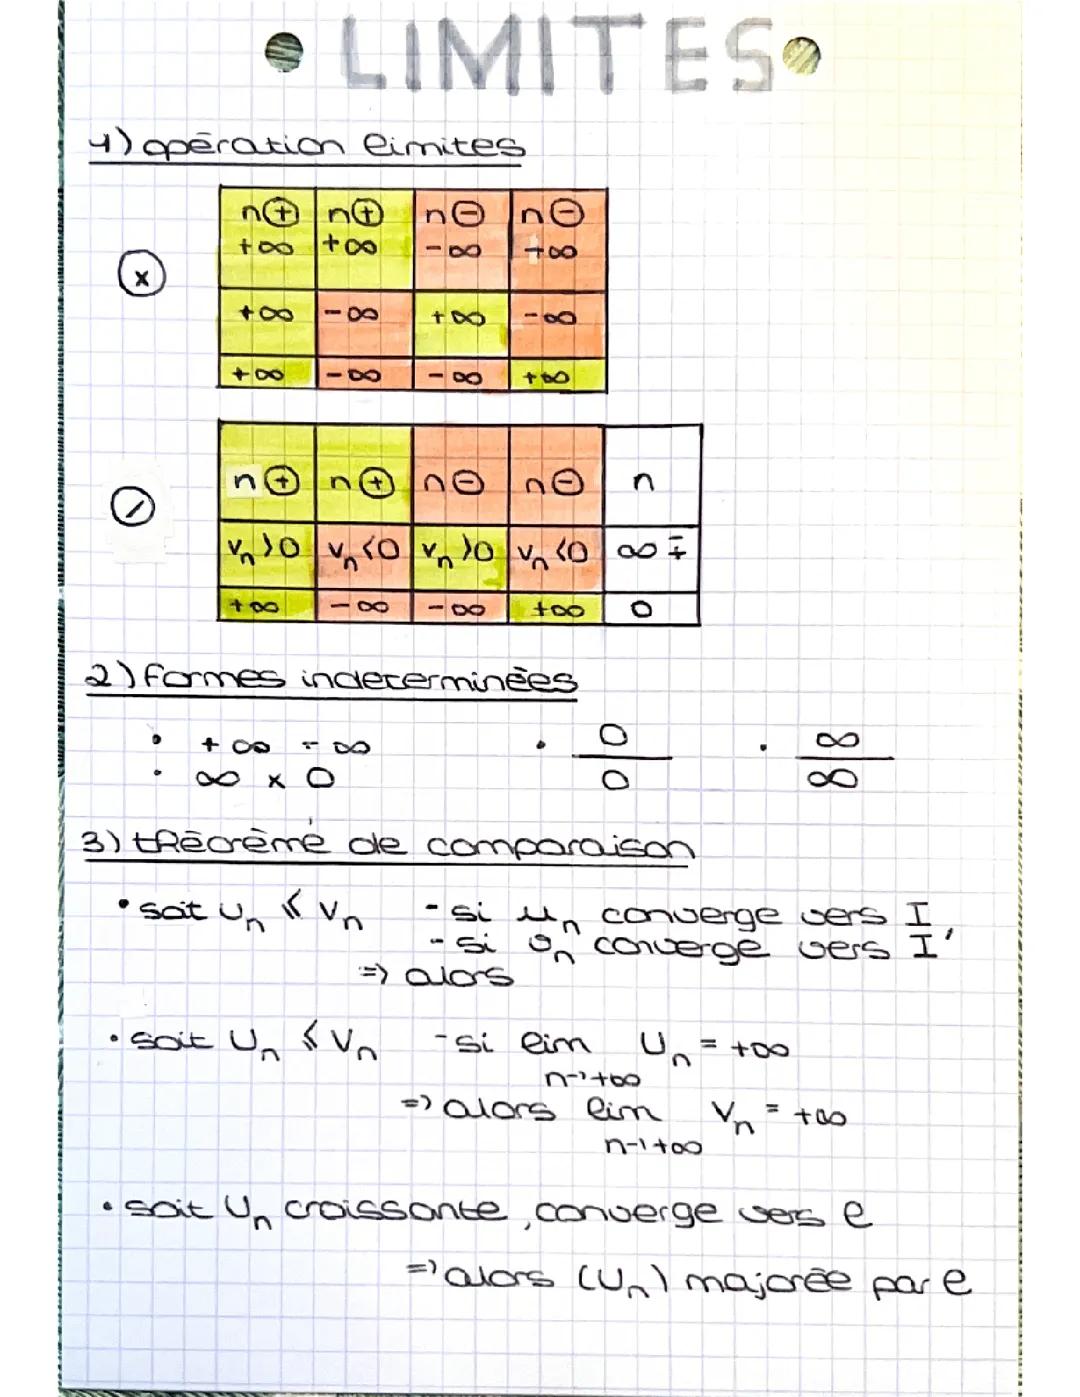 • LIMITES •
1) opération limites
n⊕ n⊕ n⊖ n⊖
+∞ +∞ -∞ +∞
×
+∞ -∞ +∞ -∞
+∞ -∞ -∞ +∞
n⊕ n⊕ n⊖ n⊖ n
/
Vn>0 Vn<0 Vn>0 Vn<0 ∞ ∓
+∞ -∞ -∞ +∞ 0
2) formes indeterminées
• +∞ - ∞ • 0/0 • ∞/∞
• ∞ × 0
3) théorème de comparaison
• soit Un ⩽ Vn - si un converge vers I,
- si vn converge vers I'
=> alors
• soit Un ⩽ Vn - si lim Un = +∞
n->+∞
=> alors lim Vn = +∞
n->+∞
• soit Un croissante, converge vers l
=> alors (Un) majorée par l